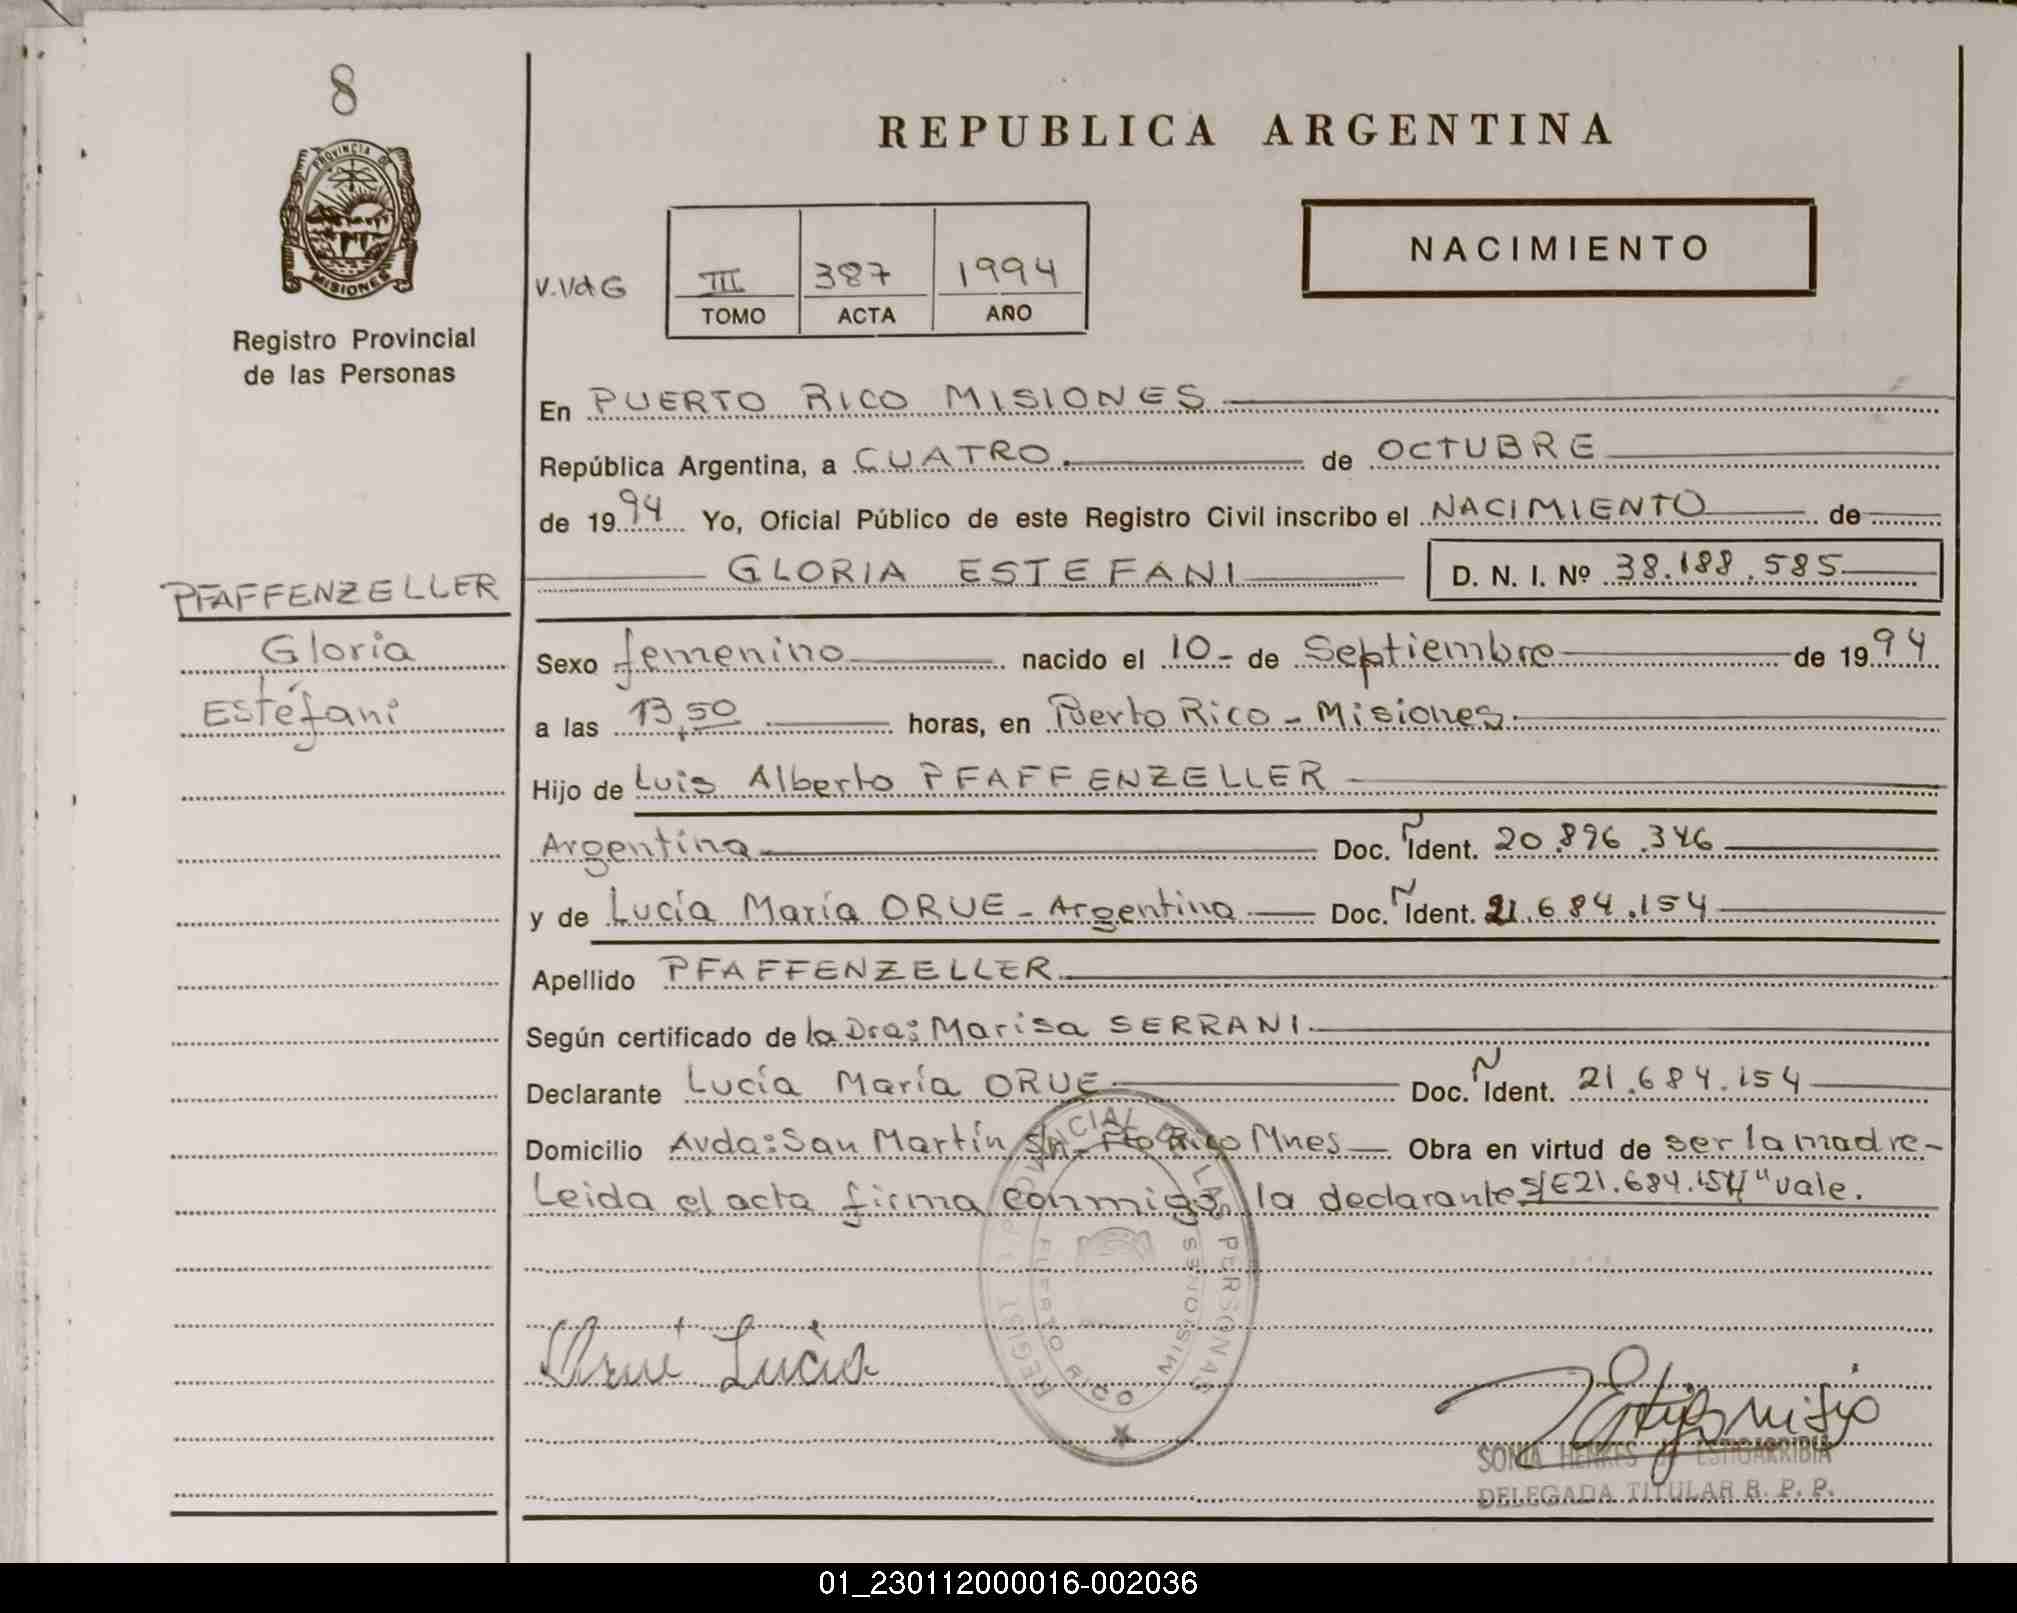 8
REPUBLICA ARGENTINA
PROVINCIA DE
MISIONES
NACIMIENTO
V.VdG
III 387 1994
TOMO ACTA AÑO
Registro Provincial
de las Personas
En PUERTO RICO MISIONES
República Argentina, a CUATRO. de OCTUBRE
de 1994 Yo, Oficial Público de este Registro Civil inscribo el NACIMIENTO de
GLORIA ESTEFANI D. N. I. Nº 38.188.585
PFAFFENZELLER
Gloria
Estéfani
Sexo femenino nacido el 10- de Septiembre de 1994
a las 13,50 horas, en Puerto Rico - Misiones.
Hijo de Luis Alberto PFAFFENZELLER
Argentina Doc. Ñ Ident. 20.896.346
y de Lucía María ORUE - Argentina Doc. Ñ Ident. 21.684.154
Apellido PFAFFENZELLER
Según certificado de la Dra: Marisa SERRANI
Declarante Lucía María ORUE Doc. Ñ Ident. 21.684.154
Domicilio Avda: San Martín S/n- Pto Rico Mnes Obra en virtud de ser la madre-
Leida el acta firma conmigo la declarante S/E 21.684.154 "vale.
REGIST PROVINCIAL DE LAS PERSONAS
PUERTO RICO MISIONES
Orué Lucia
SONIA HENKES DE ESTIGARRIBIA
DELEGADA TITULAR R. P. P.
01_230112000016-002036